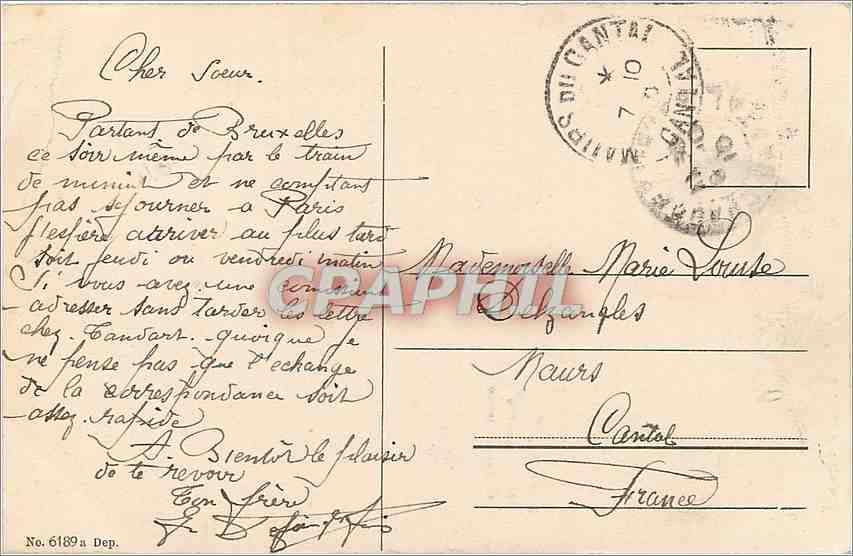 Cher Soeur.
Partant de Bruxelles
ce soir même par le train
de minuit et ne comptant
pas sejourner a Paris
j'espère arriver au plus tard
soit jeudi ou vendredi matin
Si vous avez une
adresser sans tarder les lettre
chez Tandart. quoique je
ne pense pas que l'echange
de la correspondance soit
assez rapide
A Bientôt le plaisir
de te revoir
Ton frère
No. 6189a Dep.
MAURS DU CANTAL
7 10
CPAPHIL
Mademoiselle Marie Louise
Delzangles
Maurs
Cantal
France